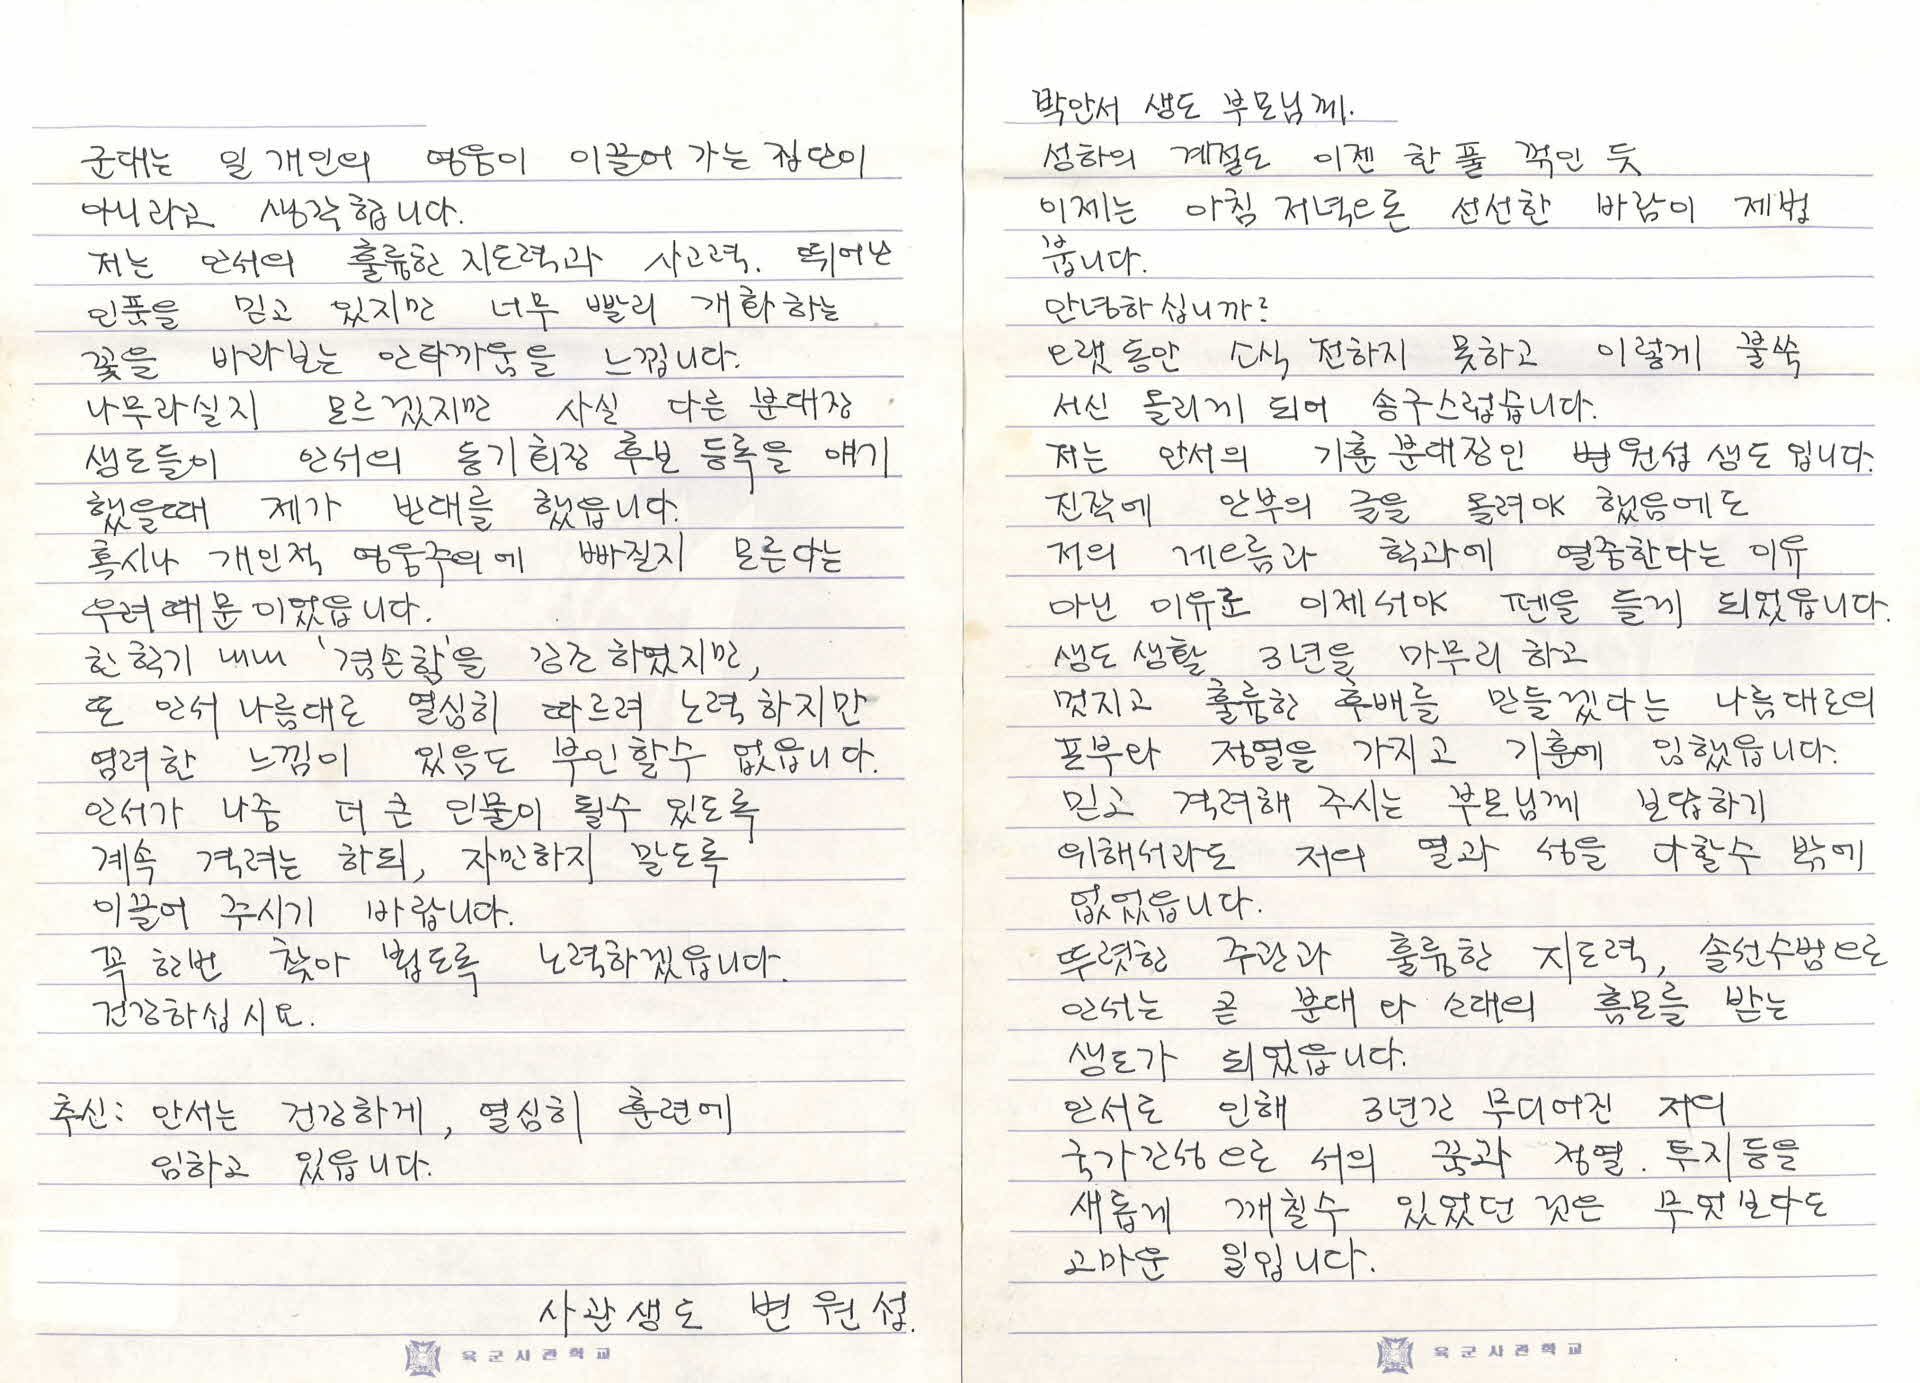 박안서 생도 부모님께.
성하의 계절도 이젠 한풀 꺾인 듯
이제는 아침 저녁으론 선선한 바람이 제법
붑니다.
안녕하십니까?
오랫동안 소식 전하지 못하고 이렇게 불쑥
서신 올리게 되어 송구스럽습니다.
저는 안서의 기훈 분대장인 변원섭 생도 입니다.
진작에 안부의 글을 올려야 했음에도
저의 게으름과 학과에 열중한다는 이유
아닌 이유로 이제서야 펜을 들게 되었읍니다.
생도 생활 3년을 마무리 하고
멋지고 훌륭한 후배를 만들겠다는 나름대로의
포부와 정열을 가지고 기훈에 임했읍니다.
믿고 격려해 주시는 부모님께 보답하기
위해서라도 저의 열과 성을 다할수 밖에
없었읍니다.
뚜렷한 주관과 훌륭한 지도력, 솔선수범으로
안서는 곧 분대와 소대의 흠모를 받는
생도가 되었읍니다.
안서로 인해 3년간 무디어진 저의
국가간성으로 서의 꿈과 정열. 투지등을
새롭게 깨칠수 있었던 것은 무엇보다도
고마운 일입니다.
육군사관학교
군대는 일 개인의 영웅이 이끌어 가는 집단이
아니라고 생각합니다.
저는 안서의 훌륭한 지도력과 사고력. 뛰어난
인품을 믿고 있지만 너무 빨리 개화하는
꽃을 바라보는 안타까움을 느낍니다.
나무라실지 모르겠지만 사실 다른 분대장
생도들이 안서의 동기회장 후보 등록을 얘기
했을때 제가 반대를 했읍니다.
혹시나 개인적 영웅주의에 빠질지 모른다는
우려 때문이었읍니다.
한 학기 내내 '겸손함'을 강조 하였지만,
또 안서 나름대로 열심히 따르려 노력하지만
염려한 느낌이 있음도 부인할수 없읍니다.
안서가 나중 더 큰 인물이 될수 있도록
계속 격려는 하되, 자만하지 말도록
이끌어 주시기 바랍니다.
꼭 한번 찾아 뵙도록 노력하겠읍니다.
건강하십시요.
추신: 안서는 건강하게, 열심히 훈련에
임하고 있읍니다.
사관생도 변원섭.
육군사관학교